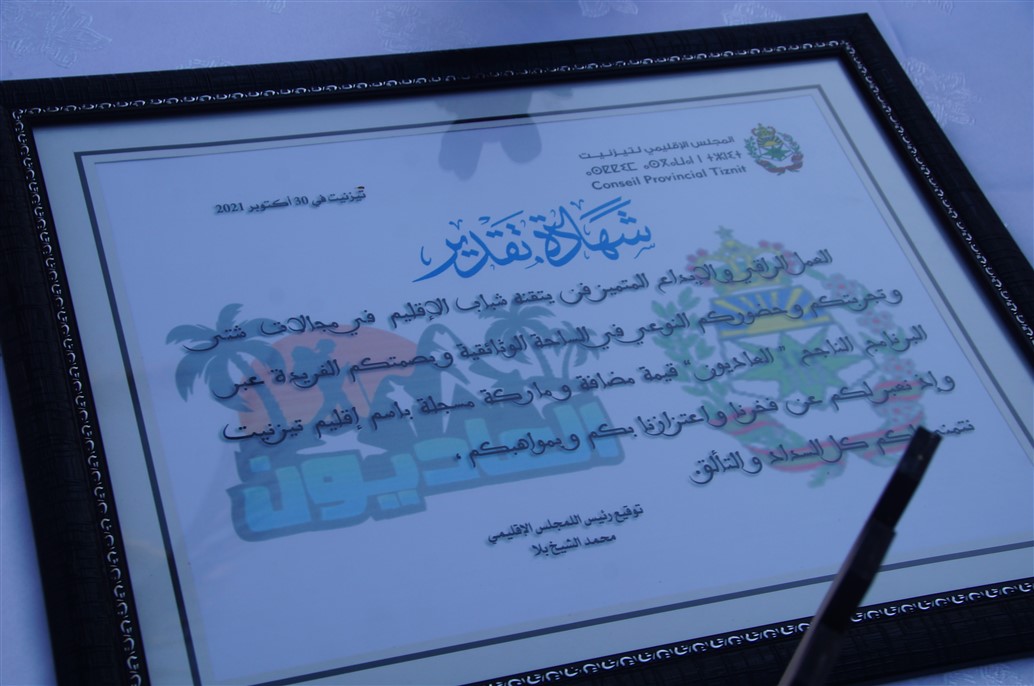 المجلس الإقليمي لتيزنيت
ⴰⵙⵇⵇⵉⵎ ⴰⵙⴳⴰⵡⴰⵏ ⵏ ⵜⵉⵣⵏⵉⵜ
Conseil Provincial Tiznit
تيزنيت في 30 أكتوبر 2021
شهادة تقدير
العمل الراقي و الإبداع المتميز فن يتقنه شباب الإقليم في مجالات شتى
وتجربتكم وحضوركم النوعي في الساحة الوثائقية وبصمتكم الفريدة عبر
البرنامج الناجح "العاديون" قيمة مضافة وماركة مسجلة باسم إقليم تيزنيت
وإذ نعبر لكم عن فخرنا واعتزازنا بكم وبمواهبكم ،
نتمنى لكم كل السداد والتألق.
العاديون
توقيع رئيس اللمجلس الإقليمي
محمد الشيخ بلا